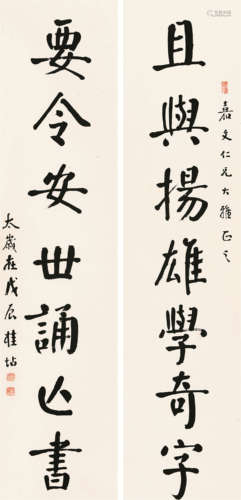 嘉文仁兄大雅正之
且與揚雄學奇字
要令安世誦亾書
太歲在戊辰桂坫